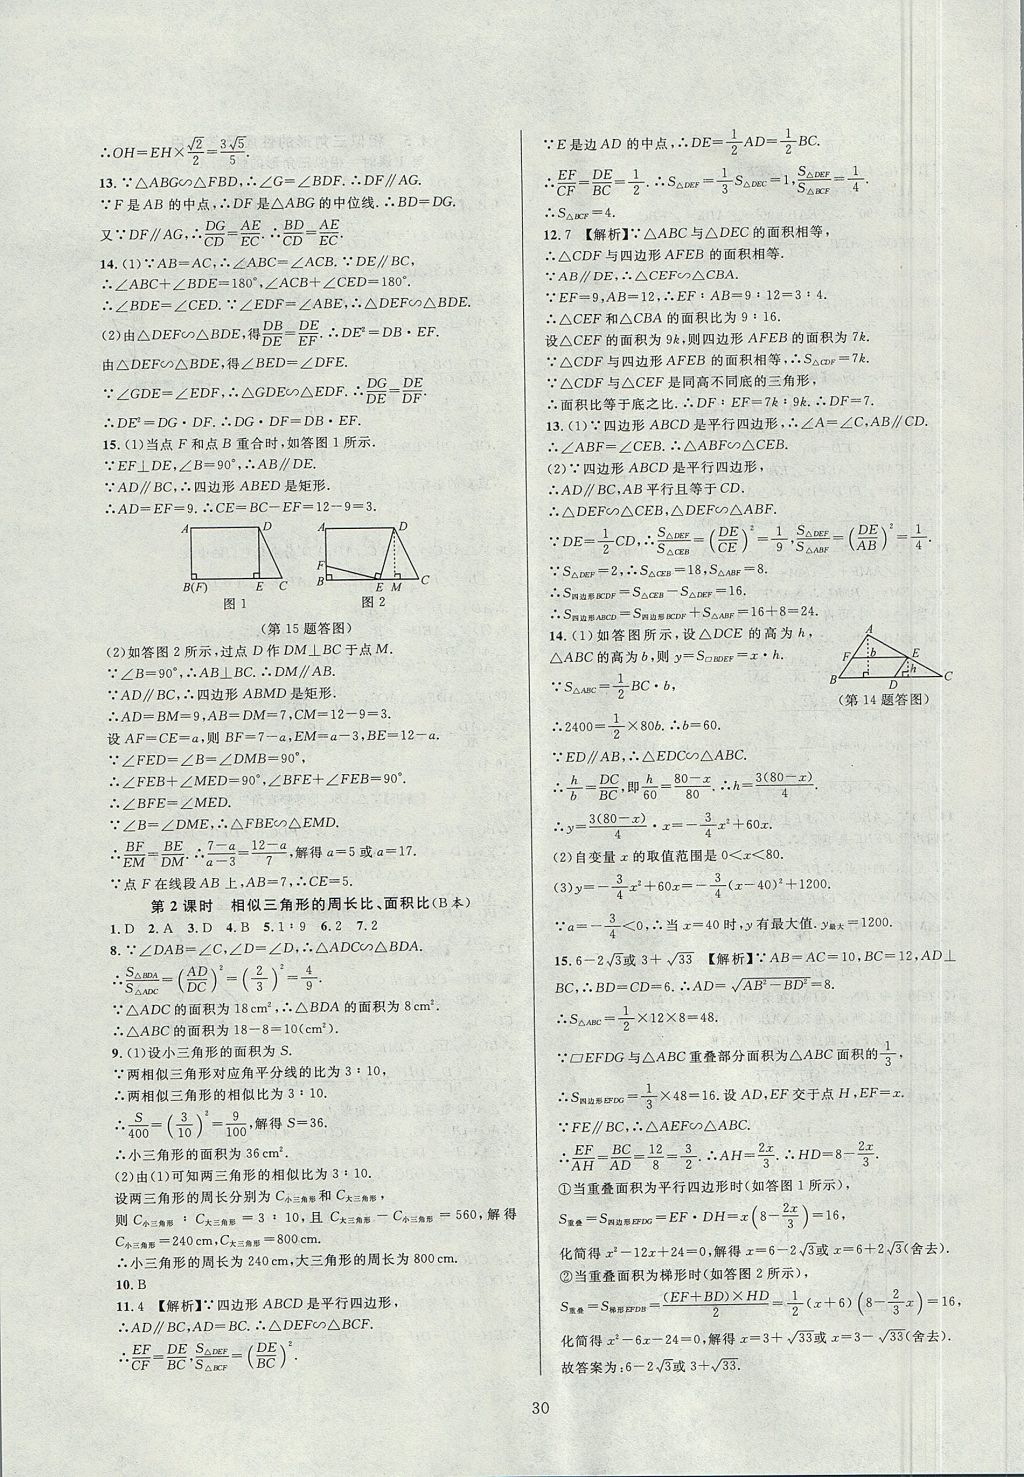 ∴OH=EH×√2/2=3√5/5.
13.∵△ABG∽△FBD,∴∠G=∠BDF.∴DF∥AG.
∵F是AB的中点,∴DF是△ABG的中位线.∴BD=DG.
又∵DF∥AG,∴DG/CD=AE/EC.∴BD/CD=AE/EC.
14.(1)∵AB=AC,∴∠ABC=∠ACB.∵DE∥BC,
∴∠ABC+∠BDE=180°,∠ACB+∠CED=180°.
∴∠BDE=∠CED.∵∠EDF=∠ABE,∴△DEF∽△BDE.
(2)由△DEF∽△BDE,得DB/DE=DE/EF.∴DE²=DB·EF.
由△DEF∽△BDE,得∠BED=∠DFE.
∵∠GDE=∠EDF,∴△GDE∽△EDF.∴DG/DE=DE/DF.
∴DE²=DG·DF.∴DG·DF=DB·EF.
15.(1)当点F和点B重合时,如答图1所示.
∵EF⊥DE,∠B=90°,∴AB∥DE.
∵AD∥BC,∴四边形ABED是矩形.
∴AD=EF=9.∴CE=BC-EF=12-9=3.
A D B(F) E C
图1
A D F B E M C
图2
(第15题答图)
(2)如答图2所示,过点D作DM⊥BC于点M.
∵∠B=90°,∴AB⊥BC.∴DM∥AB.
∵AD∥BC,∴四边形ABMD是矩形.
∴AD=BM=9,AB=DM=7,CM=12-9=3.
设AF=CE=a,则BF=7-a,EM=a-3,BE=12-a.
∵∠FED=∠B=∠DMB=90°,
∴∠FEB+∠MED=90°,∠BFE+∠FEB=90°.
∴∠BFE=∠MED.
∵∠B=∠DME,∴△FBE∽△EMD.
∴BF/EM=BE/DM.∴(7-a)/(a-3)=(12-a)/7,解得a=5或a=17.
∵点F在线段AB上,∴CE=5.
第2课时 相似三角形的周长比、面积比(B本)
1.D 2.A 3.D 4.B 5.1∶9 6.2 7.2
8.∵∠DAB=∠C,∠D=∠D,∴△ADC∽△BDA.
∴S△BDA/S△ADC=(AD/DC)²=(2/3)²=4/9.
∵△ADC的面积为18cm²,∴△BDA的面积为8cm².
∴△ABC的面积为18-8=10(cm²).
9.(1)设小三角形的面积为S.
∵两相似三角形对应角平分线的比为3∶10,
∴两相似三角形的相似比为3∶10.
∴S/400=(3/10)²=9/100,解得S=36.
∴小三角形的面积为36cm².
(2)由(1)可知两三角形的相似比为3∶10.
设两三角形的周长分别为C小三角形和C大三角形,
则C小三角形∶C大三角形=3∶10,且C大三角形-C小三角形=560,解得
C小三角形=240cm,C大三角形=800cm.
∴小三角形的周长为240cm,大三角形的周长为800cm.
10.B
11.4 【解析】∵四边形ABCD是平行四边形,
∴AD∥BC,AD=BC.∴△DEF∽△BCF.
∴EF/CF=DE/BC,S△DEF/S△BCF=(DE/BC)².
∵E是边AD的中点,∴DE=1/2AD=1/2BC.
∴EF/CF=DE/BC=1/2.∴S△DEF=1/3S△DEC=1,S△DEF/S△BCF=1/4.
∴S△BCF=4.
12.7 【解析】∵△ABC与△DEC的面积相等,
∴△CDF与四边形AFEB的面积相等.
∵AB∥DE,∴△CEF∽△CBA.
∵EF=9,AB=12,∴EF∶AB=9∶12=3∶4.
∴△CEF和△CBA的面积比为9∶16.
设△CEF的面积为9k,则四边形AFEB的面积为7k.
∵△CDF与四边形AFEB的面积相等,∴S△CDF=7k.
∵△CDF与△CEF是同高不同底的三角形,
∴面积比等于底之比.∴DF∶EF=7k∶9k.∴DF=7.
13.(1)∵四边形ABCD是平行四边形,∴∠A=∠C,AB∥CD.
∴∠ABF=∠CEB.∴△ABF∽△CEB.
(2)∵四边形ABCD是平行四边形,
∴AD∥BC,AB平行且等于CD.
∴△DEF∽△CEB,△DEF∽△ABF.
∵DE=1/2CD,∴S△DEF/S△CEB=(DE/CE)²=1/9,S△DEF/S△ABF=(DE/AB)²=1/4.
∵S△DEF=2,∴S△CEB=18,S△ABF=8.
∴S四边形BCDF=S△CEB-S△DEF=16.
∴S四边形ABCD=S四边形BCDF+S△ABF=16+8=24.
14.(1)如答图所示,设△DCE的高为h,
△ABC的高为b,则y=S□BDEF=x·h.
∵S△ABC=1/2BC·b,
A F b E h B D C
(第14题答图)
∴2400=1/2×80b.∴b=60.
∵ED∥AB,∴△EDC∽△ABC.
∴h/b=DC/BC,即h/60=(80-x)/80.∴h=3(80-x)/4.
∴y=3(80-x)/4·x=-3/4x²+60x.
(2)自变量x的取值范围是0<x<80.
(3)y=-3/4x²+60x=-3/4(x-40)²+1200.
∵a=-3/4<0,∴当x=40时,y有最大值.y最大=1200.
15.6-2√3或3+√33 【解析】∵AB=AC=10,BC=12,AD⊥
BC,∴BD=CD=6.∴AD=√(AB²-BD²)=8.
∴S△ABC=1/2×12×8=48.
∵□EFDG与△ABC重叠部分面积为△ABC面积的1/3,
∴S四边形EFDG=1/3×48=16.设AD,EF交于点H,EF=x.
∵FE∥BC,∴△AEF∽△ABC.
∴EF/AH=BC/AD=12/8=3/2.∴AH=2x/3.∴HD=8-2x/3.
①当重叠面积为平行四边形时(如答图1所示),
S重叠=S四边形EFDG=EF·DH=x(8-2x/3)=16,
化简得x²-12x+24=0,解得x=6-2√3或x=6+2√3(舍去).
②当重叠面积为梯形时(如答图2所示),
S重叠=S梯形EFDB=(EF+BD)×HD/2=1/2(x+6)(8-2/3x)=16,
化简得x²-6x-24=0,解得x=3+√33或x=3-√33(舍去).
故答案为:6-2√3或3+√33.
30